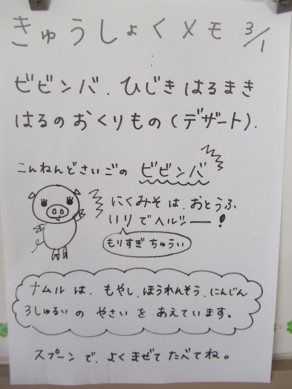 きゅうしょくメモ 3/1
ビビンバ、ひじきはるまき
はるのおくりもの(デザート)、
こんねんどさいごの ビビンバ
にくみそは、おとうふ
いりでヘルシー!
もりすぎちゅうい
ナムルは、もやし、ほうれんそう、にんじん
3しゅるいの やさいを あえています。
スプーンで、よくまぜてたべてね。